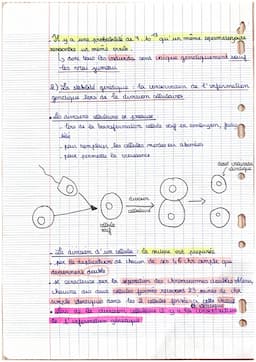 . Il y a une probabilité de qu'un même spermatozoïde
rencontre un même ovule.
↳ donc tous les individus sont unique génétiquement sauf
les vrai jumeaux
2) La stabilité génétique : la conservation de l'information
génétique lors de la division cellulaires
. La division cellulaire et
. lors de la transformation cellule œuf en embryon,
bébé
. pour remplacer les cellules mortes ou abimées
. pour permettre la croissance
cellule
œuf
division
cellulaire
. La division d'un cellule : la
. par la duplication de chacun de ses 46 chr simple qui
deviennent double
. se caractérise par la séparation des chromosomes doubles obtenu,
chacune des deux cellules formées recevant 23 paires de chr
simple identique dans les 2 cellules formées,
. lors de la division cellulaire il y a la conservation
de l'information génétique